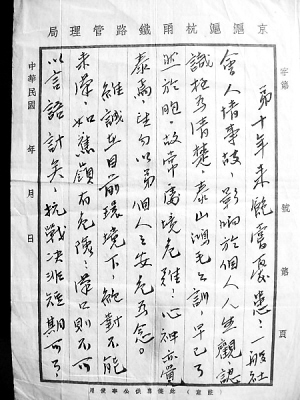 京滬滬杭甬鐵路管理局
字第 號 第 頁
弟十年來飽嘗憂患，一般社
會人情事故，影响於個人人生觀，認
識極為清楚，泰山鴻毛之訓，早已了
然於胸，故常處境危難，心神亦覺
泰焉，勿以弟個人之安危為念。
維誠在目前環境下，絕對不能
來漢，如蕉嶺有危險，漢口則不可
以言語計矣，抗戰决非短期可了
中華民國 年 月 日